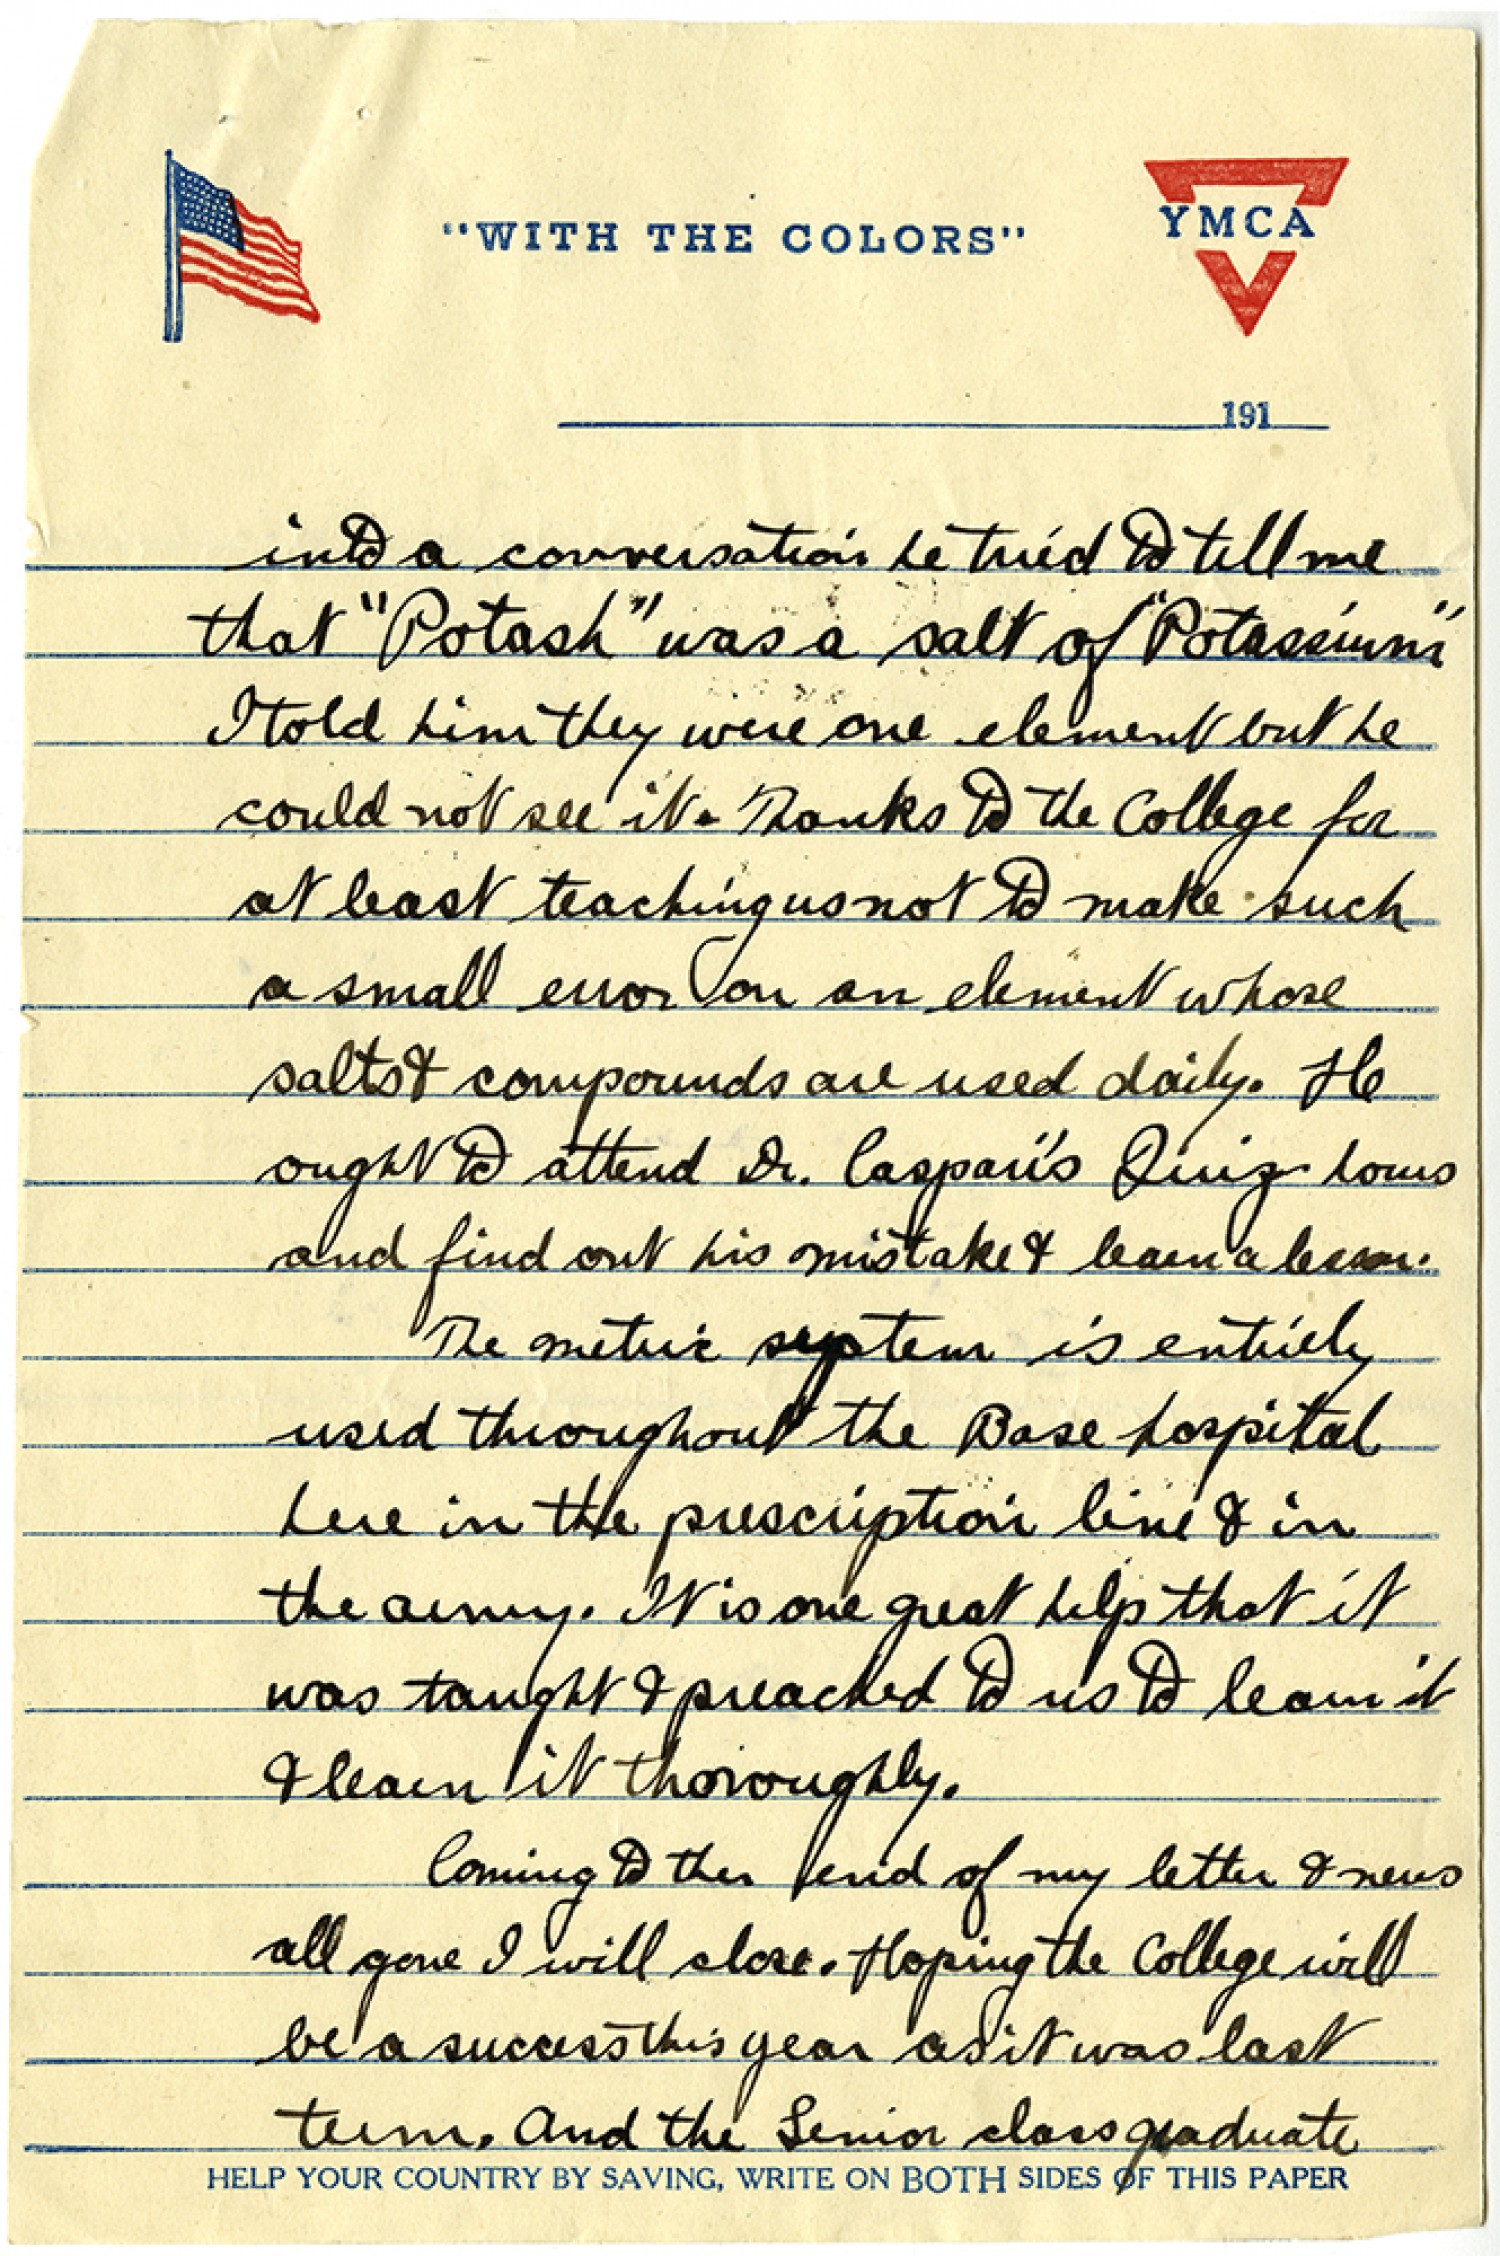 "WITH THE COLORS"
YMCA
191
into a conversation he tried to tell me
that "Potash" was a salt of "Potassium"
I told him they were one element but he
could not see it. Thanks to the College for
at least teaching us not to make such
a small error on an element whose
salts & compounds are used daily. He
ought to attend Dr. Caspari's Quiz hours
and find out his mistake & learn a lesson.
The metric system is entirely
used throughout the Base hospital
here in the prescription line & in
the army. It is one great help that it
was taught & preached to us to learn it
& learn it thoroughly.
Coming to the end of my letter & news
all gone I will close. Hoping the College will
be a success this year as it was last
term. And the Senior class graduate
HELP YOUR COUNTRY BY SAVING, WRITE ON BOTH SIDES OF THIS PAPER